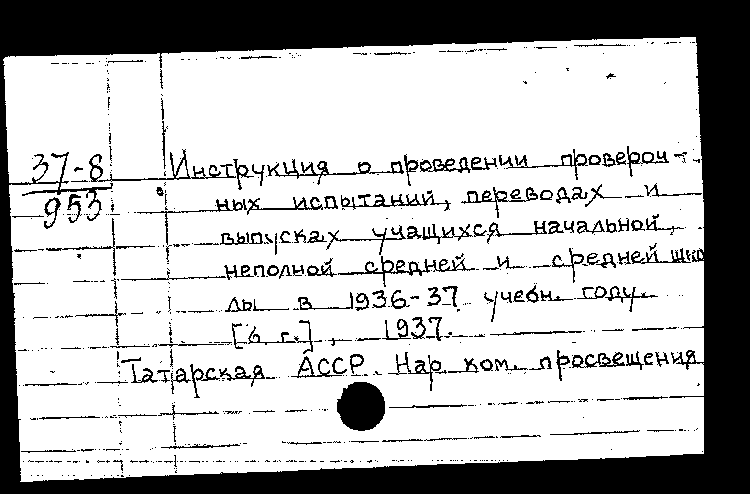 37-8
953
Инструкция о проведении провероч-
ных испытаний, переводах и
выпусках учащихся начальной,
неполной средней и средней шко
лы в 1936-37 учебн. году.
[б. г.], 1937.
Татарская АССР. Нар. ком. просвещения